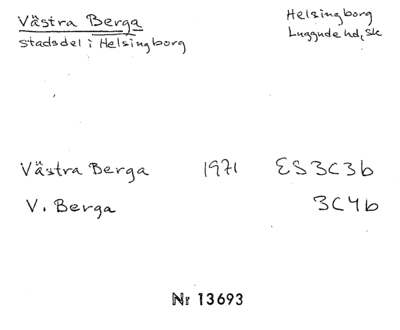 Västra Berga
Stadsdel i Helsingborg
Helsingborg
Luggude hd, Sk
Västra Berga 1971 ES3C3b
V. Berga 3C4b
Nr 13693